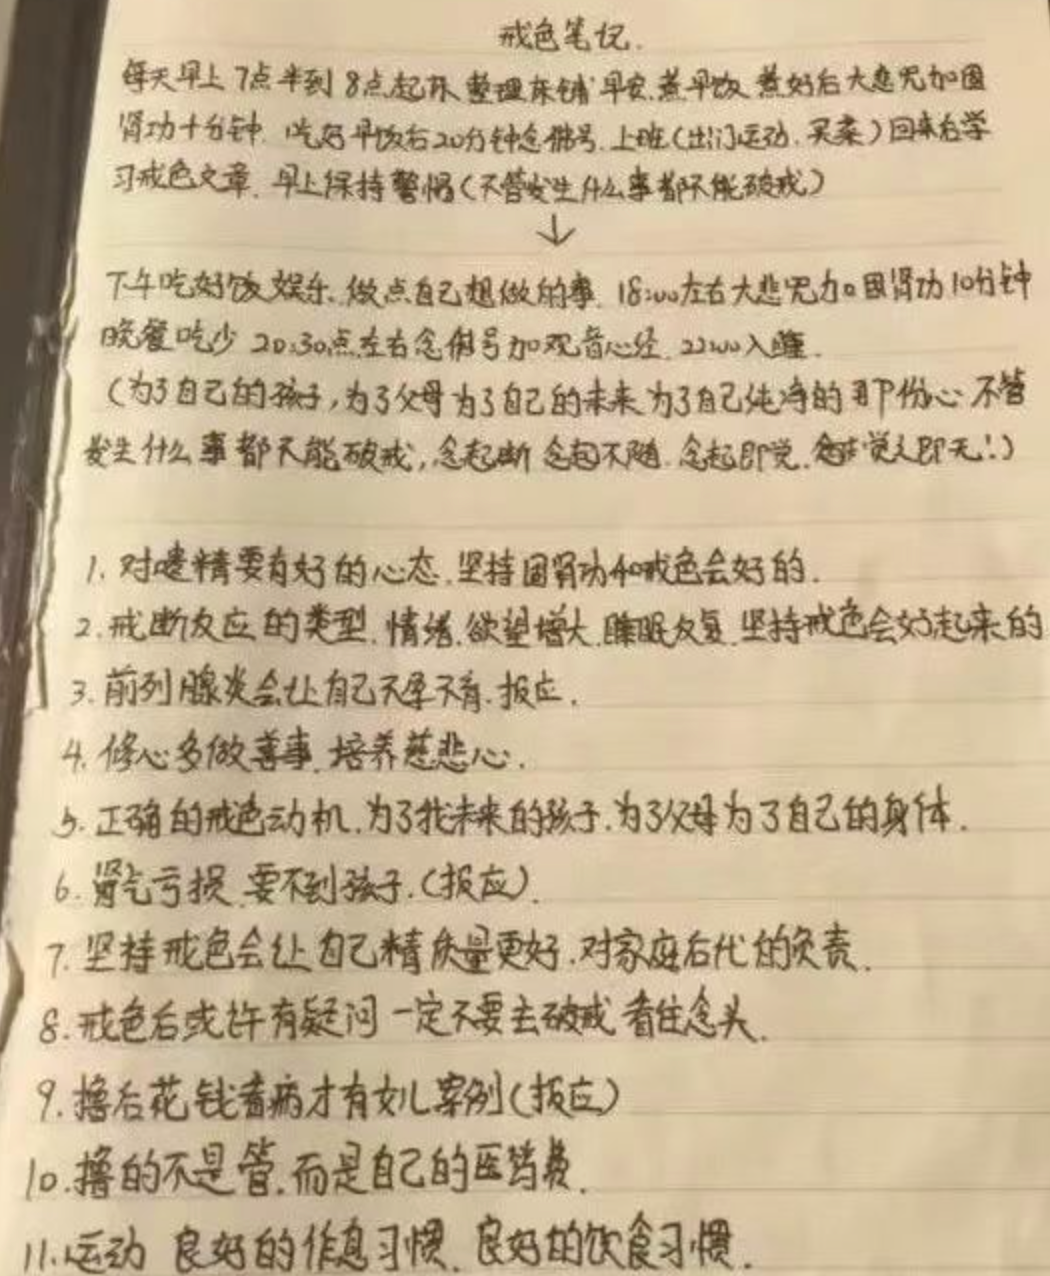 戒色笔记.
每天早上7点半到8点起床 整理床铺 早安.煮早饭 煮好后大悲咒加固
肾功十分钟. 吃好早饭后20分钟念佛号.上班(出门运动.买菜)回来后学
习戒色文章.早上保持警惕(不管发生什么事都不能破戒)
↓
下午吃好饭娱乐.做点自己想做的事.18:00左右大悲咒加固肾功10分钟
晚餐吃少 20:30点左右念佛号加观音心经.22:00入睡.
(为了自己的孩子,为了父母为了自己的未来为了自己纯净的那份心 不管
发生什么事都不能破戒,念起断 念起不随.念起即觉.觉之即无!)
1.对遗精要有好的心态.坚持固肾功和戒色会好的.
2.戒断反应的类型.情绪.欲望增大.睡眠反复.坚持戒色会好起来的
3.前列腺炎会让自己不孕不育.报应.
4.修心多做善事.培养慈悲心.
5.正确的戒色动机.为了我未来的孩子.为了父母为了自己的身体.
6.肾气亏损.要不到孩子.(报应).
7.坚持戒色会让自己精质量更好.对家庭后代的负责.
8.戒色后或许有疑问一定不要去破戒 看住念头.
9.撸后花钱看病才有女儿案例(报应)
10.撸的不是管.而是自己的医药费.
11.运动 良好的作息习惯.良好的饮食习惯.